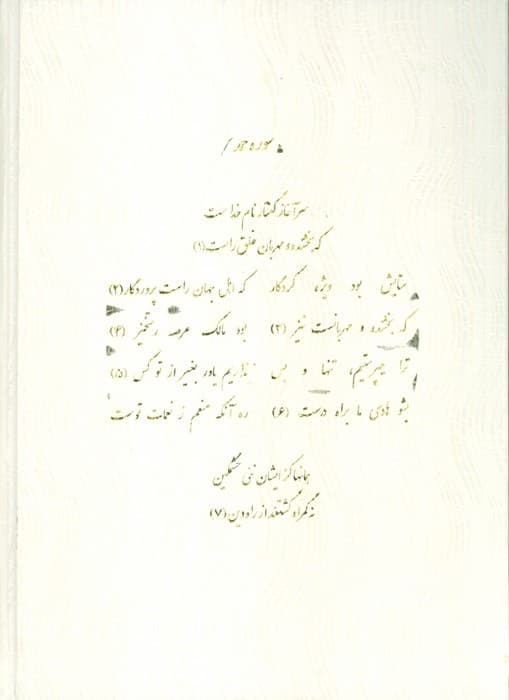 سوره حمد /
سرآغاز گفتار نام خداست
که بخشنده و مهربان خلق راست (۱)
ستایش بود ویژه کردگار که اهل جهان راست پروردگار (۲)
که بخشنده و مهربانست نیز (۳) بود مالک عرصه رستخیز (۴)
ترا میپرستیم، تنها و بس نداریم یاور بغیر از تو کس (۵)
بشو هادی ما براه درست (۶) ره آنکه منعم ز نعمات توست
همانها کز ایشان نئی خشمگین
نه گمراه گشتند از راه دین (۷)